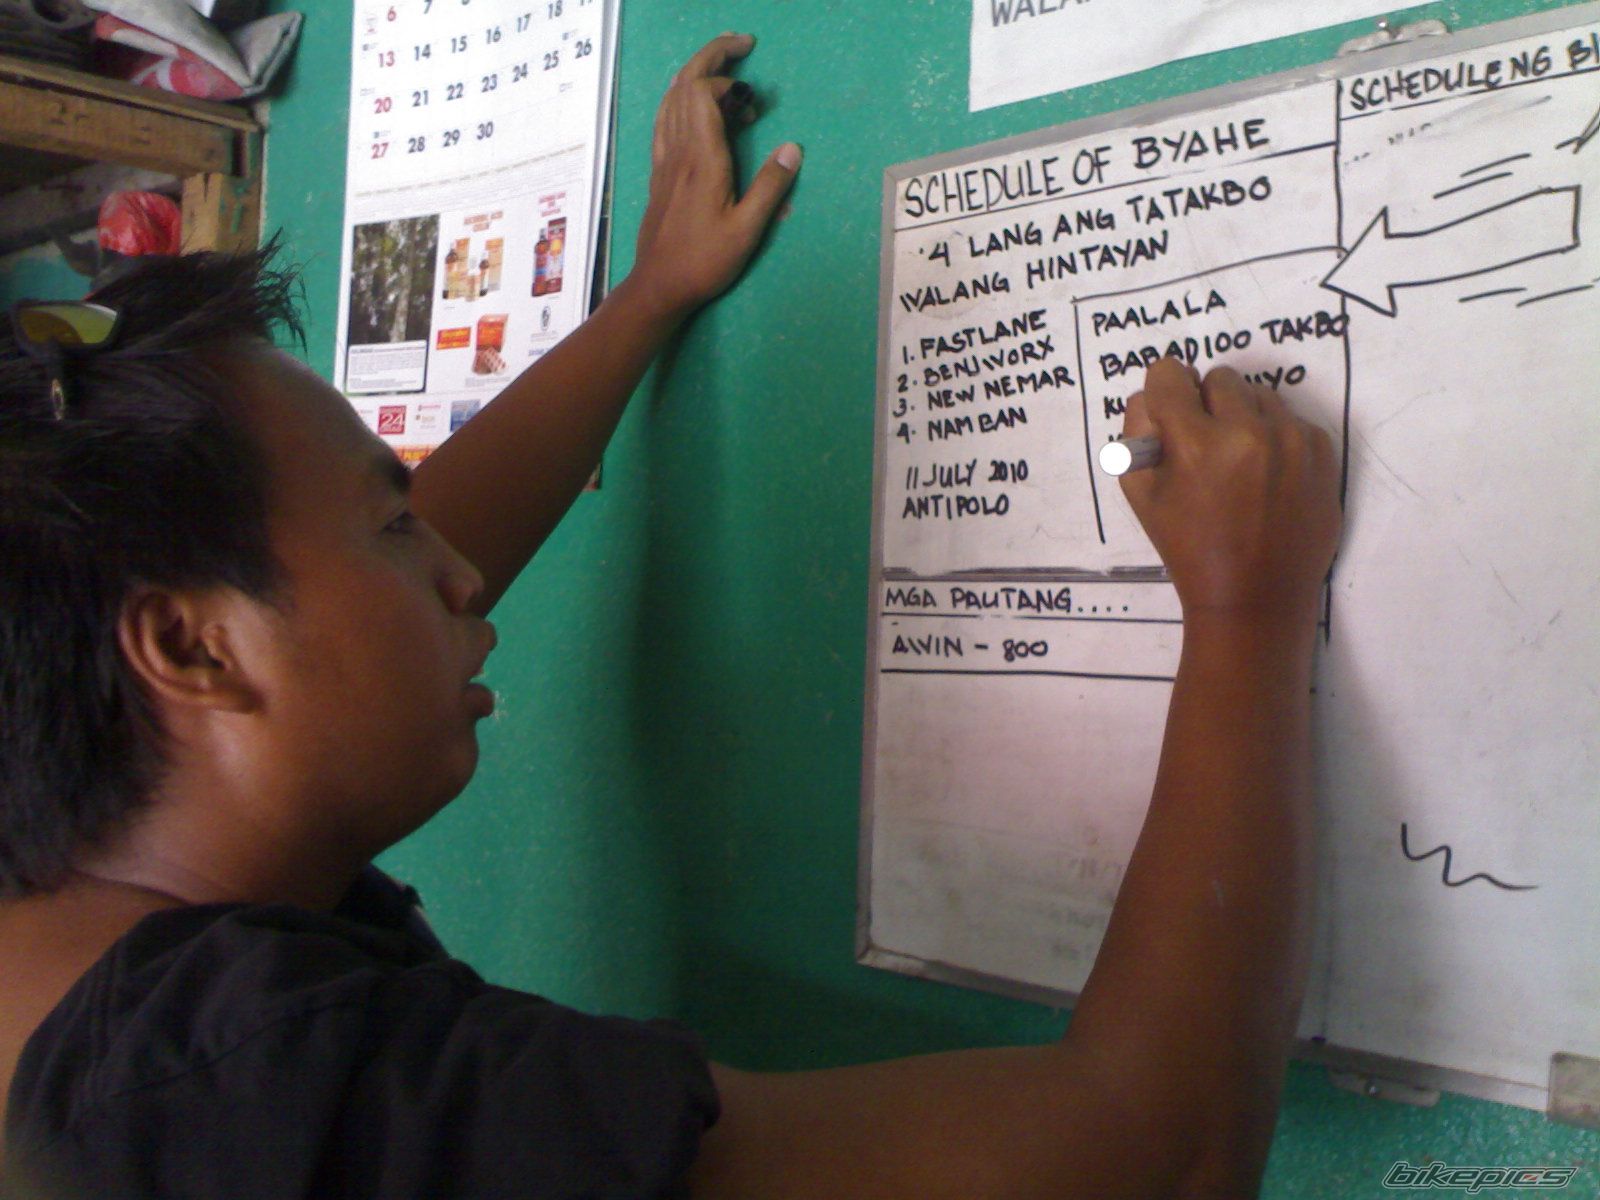 6 7 8
13 14 15 16 17 18
20 21 22 23 24 25 26
27 28 29 30
24
SCHEDULE OF BYAHE
4 LANG ANG TATAKBO
WALANG HINTAYAN
1. FASTLANE
2. BENJWORX
3. NEW NEMAR
4. NAMBAN
11 JULY 2010
ANTIPOLO
PAALALA
BABAD 100 TAKBO
MGA PAUTANG....
AWIN - 800
SCHEDULENG
bikepics